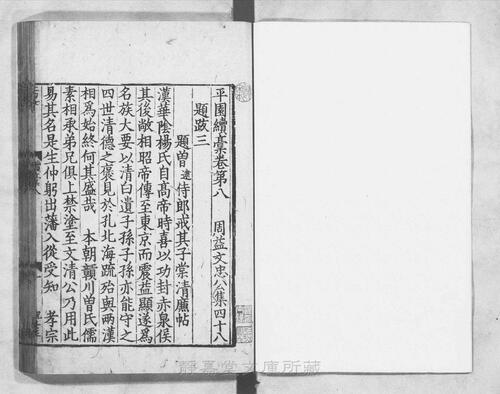 平園續藁卷第八　周益文忠公集四十八
題跋三
題曾逮侍郎戒其子棠清廉帖
漢華陰楊氏自高帝時喜以功封赤泉侯
其後敞相昭帝傳至東京而震益顯遂爲
名族大要以清白遺子孫子孫亦能守之
四世清德之褒見於孔北海䟽殆與兩漢
相爲始終何其盛哉　本朝贑川曾氏儒
素相承弟兄俱上禁塗至文清公乃用此
易其名是生仲躬出藩入從受知　孝宗
靜嘉堂文庫所藏